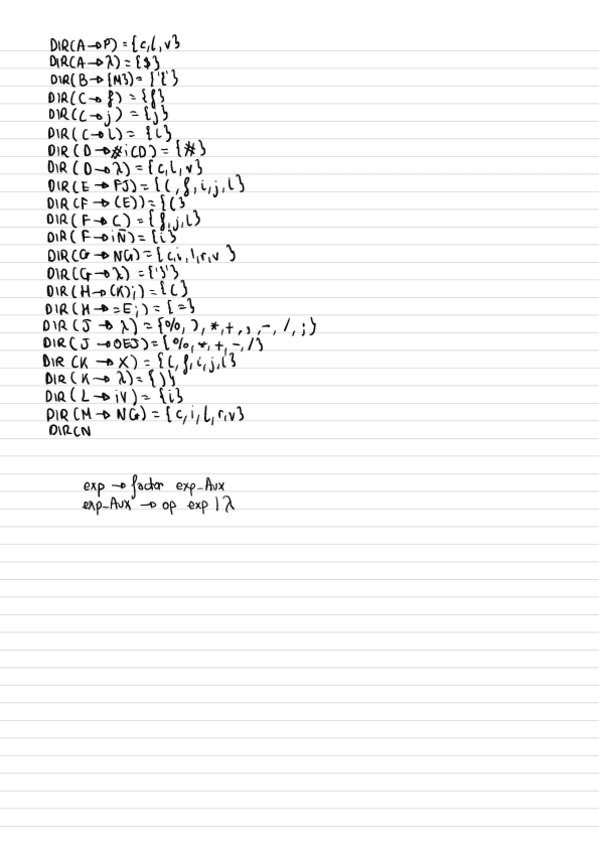 DIR(A→P) = {c,l,v}
DIR(A→λ) = {$}
DIR(B→{M}) = {'{'}
DIR(C→f) = {f}
DIR(C→j) = {j}
DIR(C→l) = {l}
DIR(D→#iCD) = {#}
DIR(D→λ) = {c,l,v}
DIR(E→FJ) = {(,f,i,j,l}
DIR(F→(E)) = {(}
DIR(F→C) = {f,j,l}
DIR(F→iÑ) = {i}
DIR(G→NG) = {c,i,l,r,v}
DIR(G→λ) = {'}'}
DIR(H→(K);) = {(}
DIR(H→=E;) = {=}
DIR(J→λ) = {%,),*,+,,,-,/,;}
DIR(J→OEJ) = {%,*,+,-,/}
DIR(K→X) = {(,f,i,j,l}
DIR(K→λ) = {)}
DIR(L→iV) = {i}
DIR(M→NG) = {c,i,l,r,v}
DIR(N
exp → factor exp_Aux
exp_Aux → op exp | λ